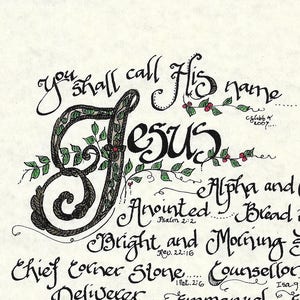 You shall call His name
Jesus
Alpha and
Anointed
Psalm 2:2
Bread
Bright and Morning
Rev. 22:16
Chief Corner Stone
1 Pet. 2:6
Counsellor
Deliverer